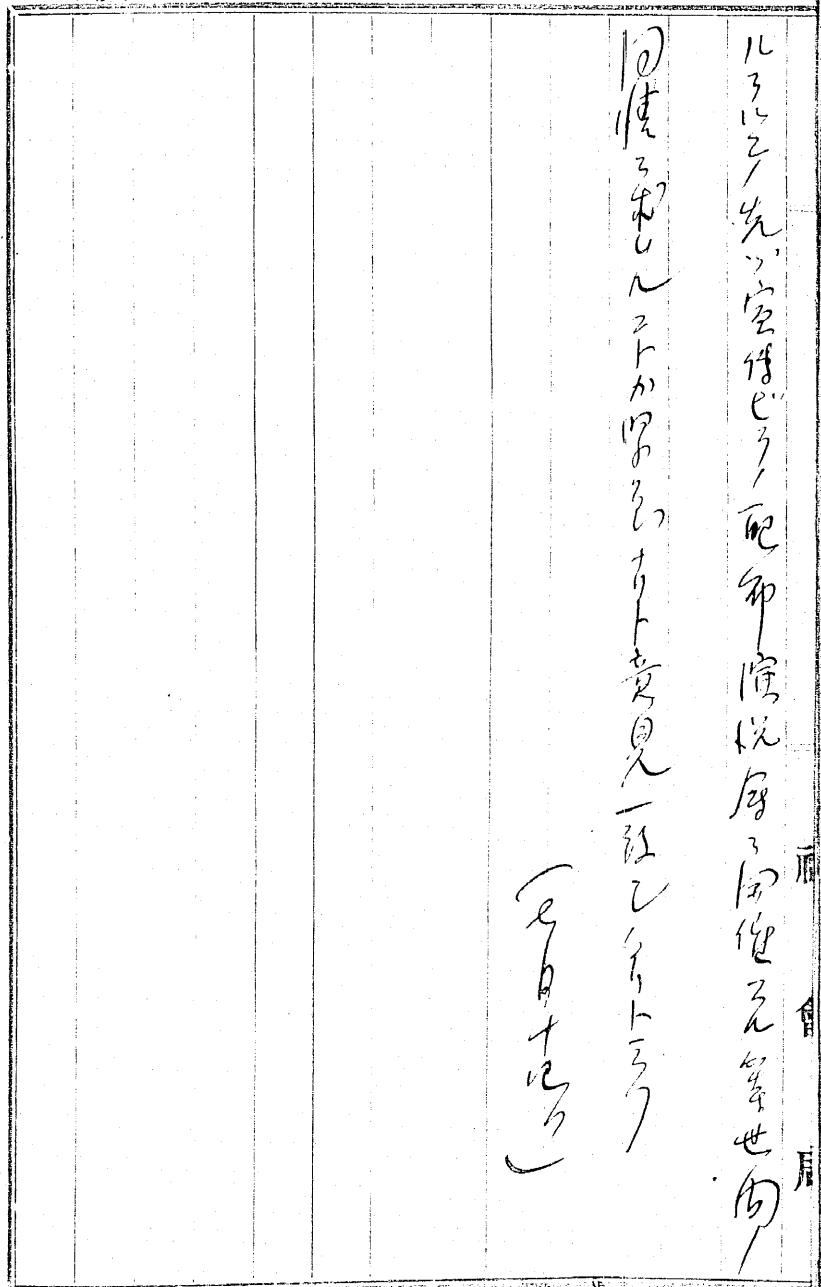 ルヲ以テ先ツ宣伝ビラノ配布演説会ヲ開催スル等世間ノ
同情ヲ求ムルコトカ肝要ナリト意見一致シ居リト云フ
(七月十四日)